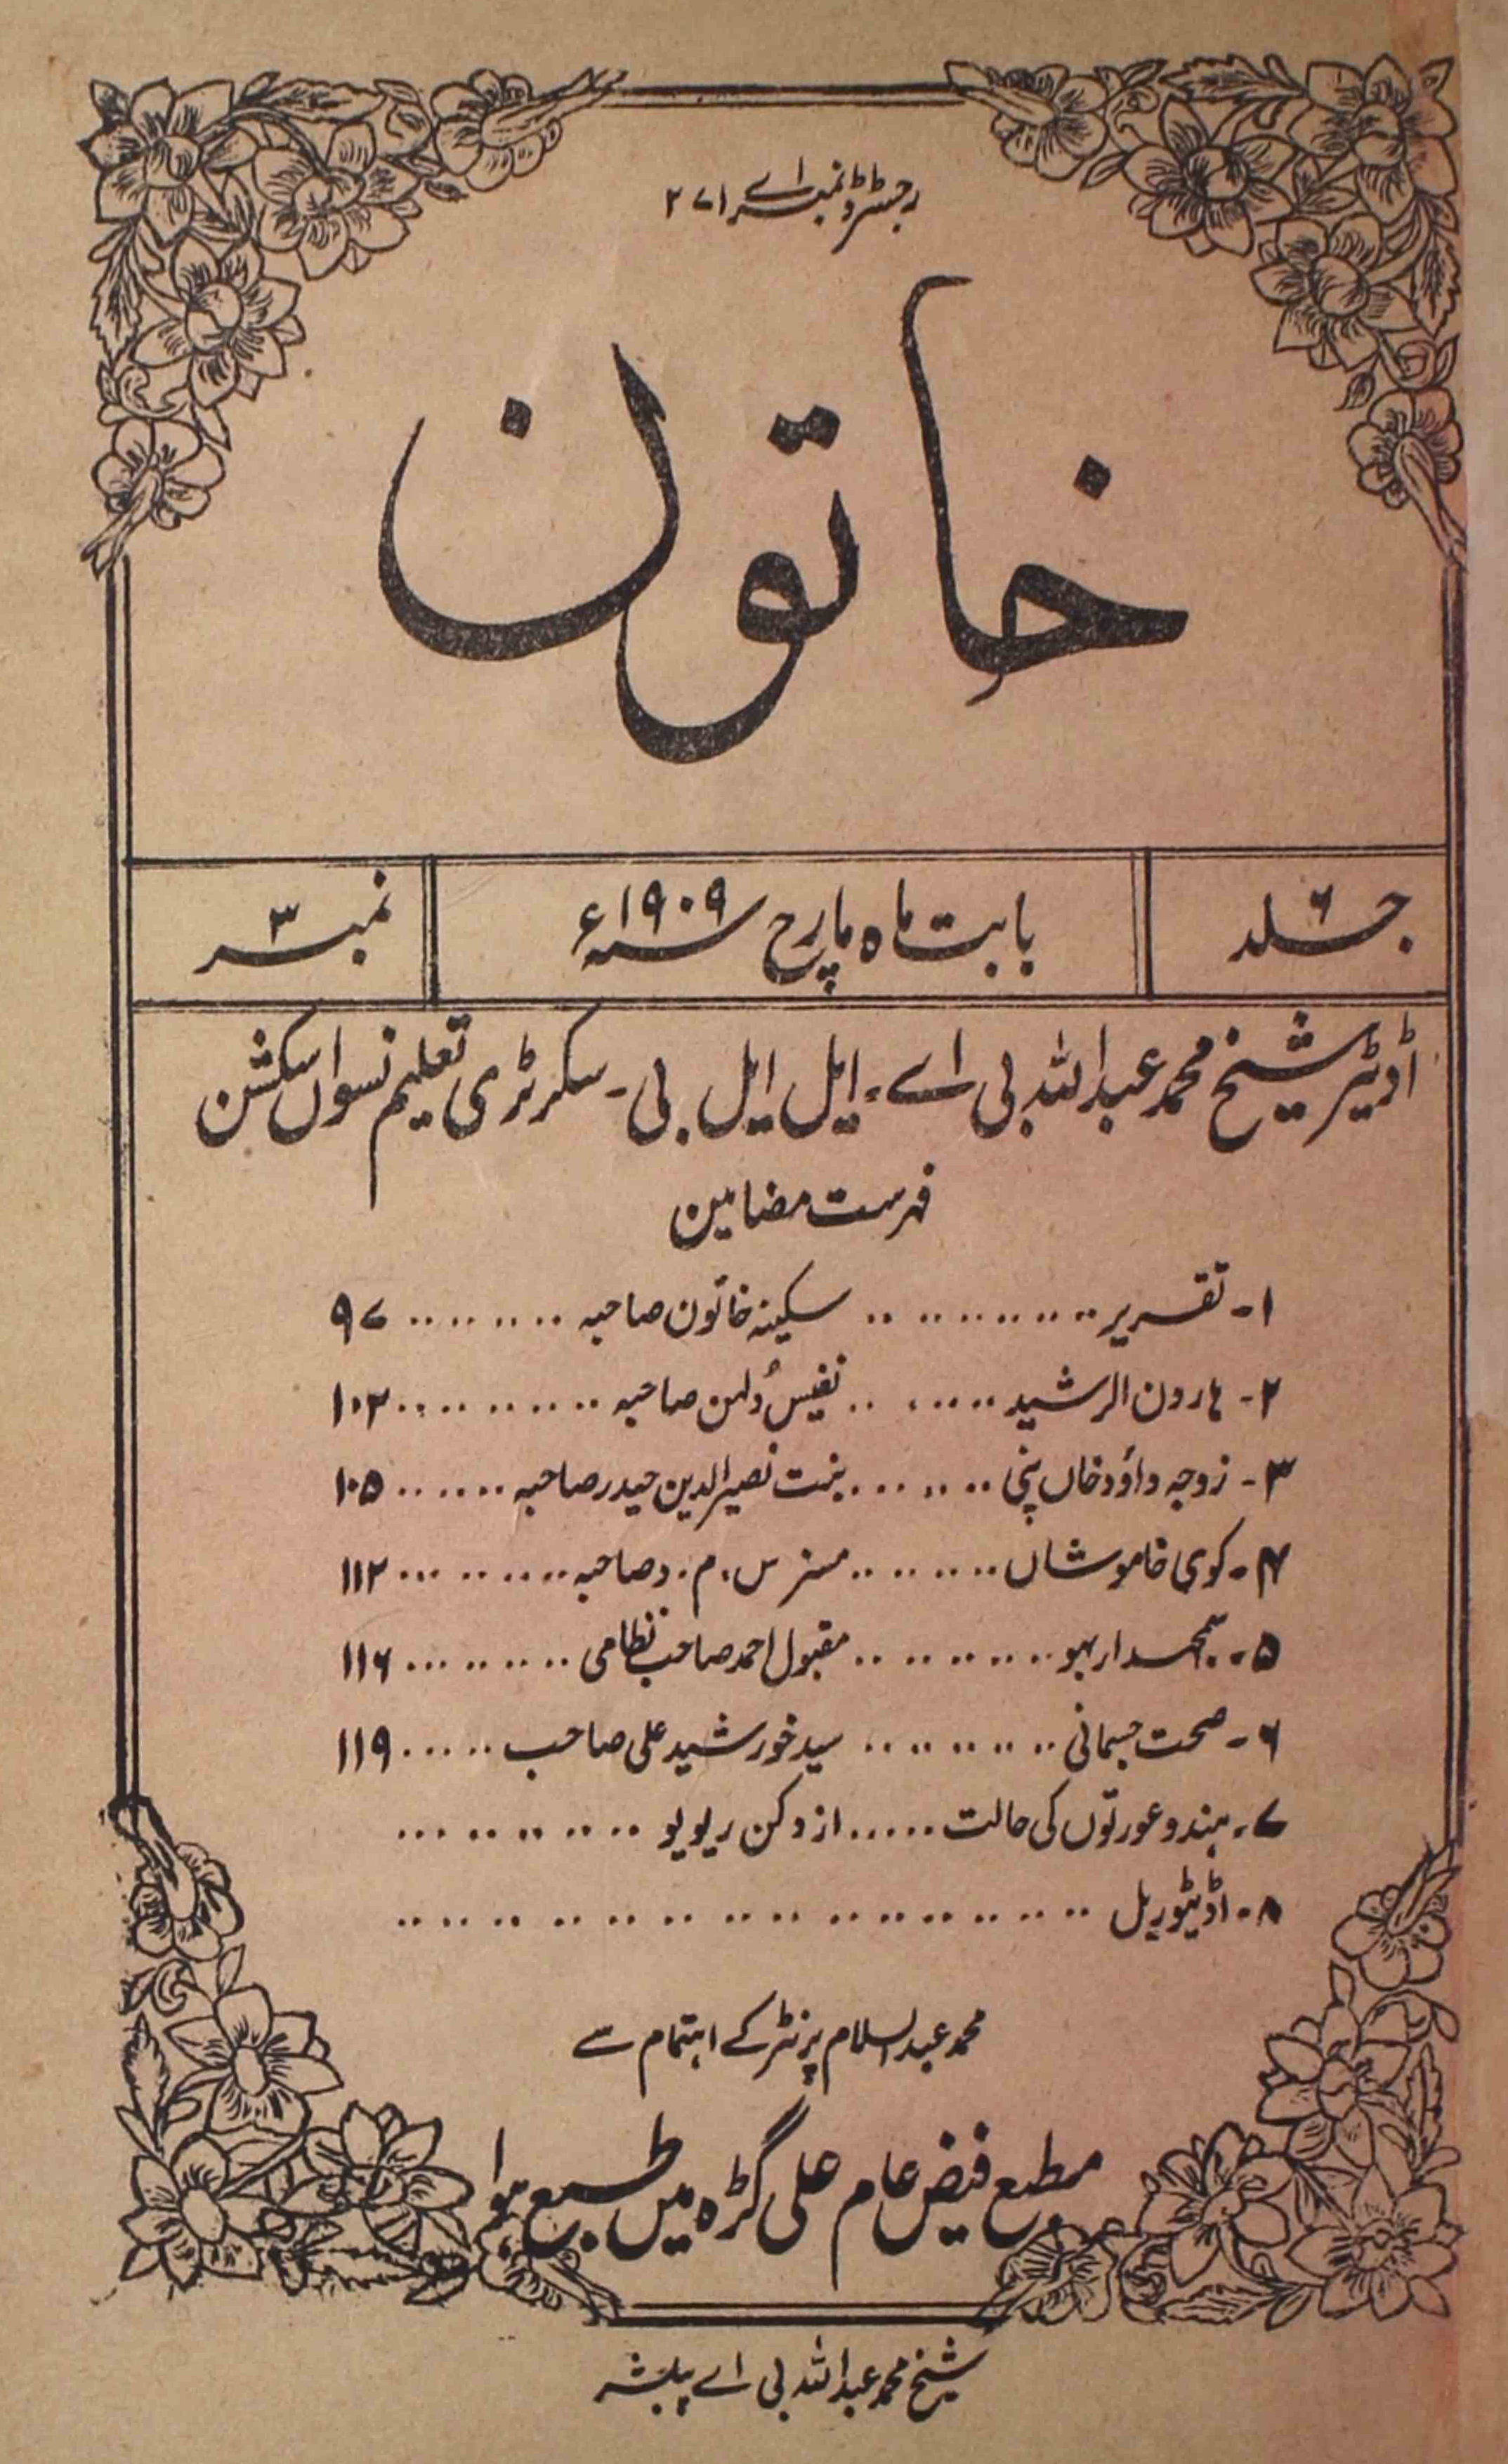 رجسٹرڈ نمبر اے ۲۷۱
خاتون
جلد ۶
بابت ماہ مارچ سنہ ۱۹۰۹ء
نمبر ۳
اڈیٹر شیخ محمد عبداللہ بی اے، ایل ایل بی۔ سکرٹری تعلیم نسواں سکشن
فہرست مضامین
۱۔ تقریر .......... سکینہ خاتون صاحبہ .......... ۹۷
۲۔ ہارون الرشید .......... نفیس دُلہن صاحبہ .......... ۱۰۲
۳۔ زوجہ داؤد خاں پنی .......... بنت نصیرالدین حیدر صاحبہ .......... ۱۰۵
۴۔ کوی خاموشاں .......... مسز س۔ م۔ د صاحبہ .......... ۱۱۲
۵۔ سمجھدار بہو .......... مقبول احمد صاحب نظامی .......... ۱۱۶
۶۔ صحت جسمانی .......... سید خورشید علی صاحب .......... ۱۱۹
۷۔ ہندو عورتوں کی حالت ..... از دکن ریویو ..........
۸۔ اڈیٹوریل ..........
محمد عبدالسلام پرنٹر کے اہتمام سے
مطبع فیض عام علی گڑہ میں طبع ہوا
شیخ محمد عبداللہ بی اے پبلشر